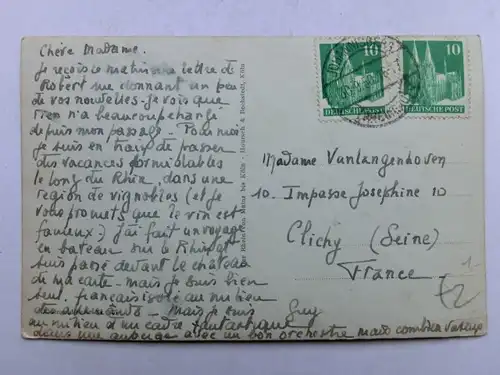 Chère Madame.
Je reçois ce matin une lettre de
Robert me donnant un peu
de vos nouvelles - Je vois que
rien n'a beaucoup changé
depuis mon passage - Pour moi
je suis en train de passer
des vacances formidables
le long du Rhin, dans une
région de vignobles (et je
vous promets que le vin est
fameux) J'ai fait un voyage
en bateau sur le Rhin et
suis passé devant le château
de ma carte - mais je suis bien
seul français isolé au milieu
des allemands - Mais je suis
au milieu d'un cadre fantastique
dans une auberge avec un bon orchestre mais combien
Guy
Mainz bis Köln - Hoursch & Bechstedt, Köln
10
DEUTSCHE POST
10
DEUTSCHE POST
Madame Vanlangenhoven
10. Impasse Josephine 10
Clichy (Seine)
France
1
£2